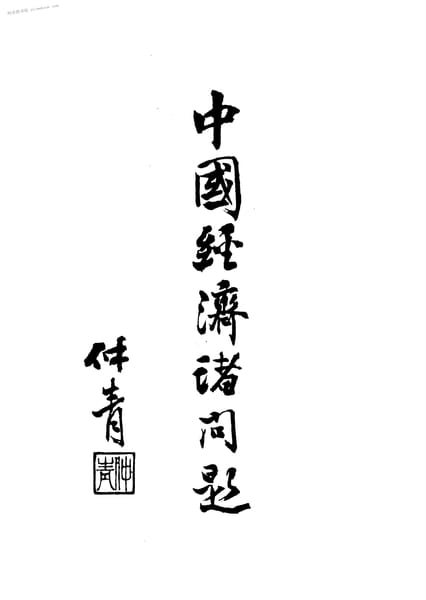 中國經濟諸問題
仲青
仲青